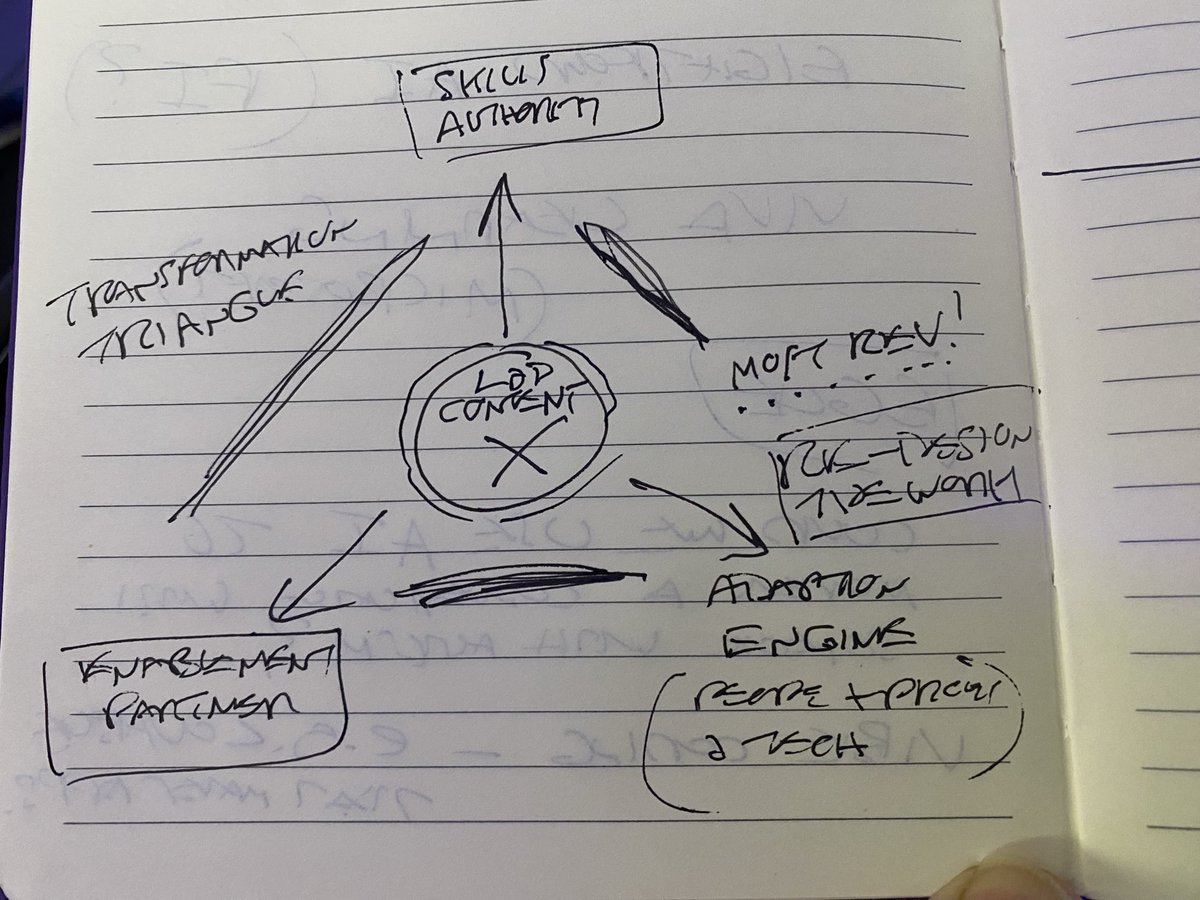 SKILLS
AUTHORITY
TRANSFORMATION
TRIANGLE
L&D
CONTENT
MOST REV!
RE-DESIGN
THE WORK
ADAPTION
ENGINE
PEOPLE +
& TECH
ENABLEMENT
PARTNER